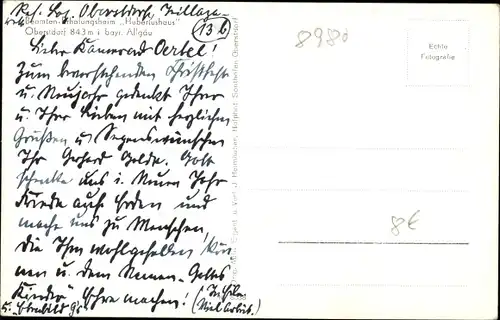 Res. Laz. Oberstdorf,
13b
Beamten-Erholungsheim „Hubertushaus"
Oberstdorf 843 m i. bayr. Allgäu
Lieber Kamerad Oertel!
Zum bevorstehenden Christfest
u. Neujahr gedenkt Ihrer
u. Ihrer Lieben mit herzlichen
Grüßen u. Segenswünschen
Ihr Gerhard Golde. Gott
schenke uns i. Neuen Jahr
Friede auf Erden und
mache uns zu Menschen,
die Ihm wohlgefallen
nen u. dem Namen Gottes
Kinder" Ehre machen!
(In Eile
Viel Arbeit.)
8980
Echte
Fotografie
8€